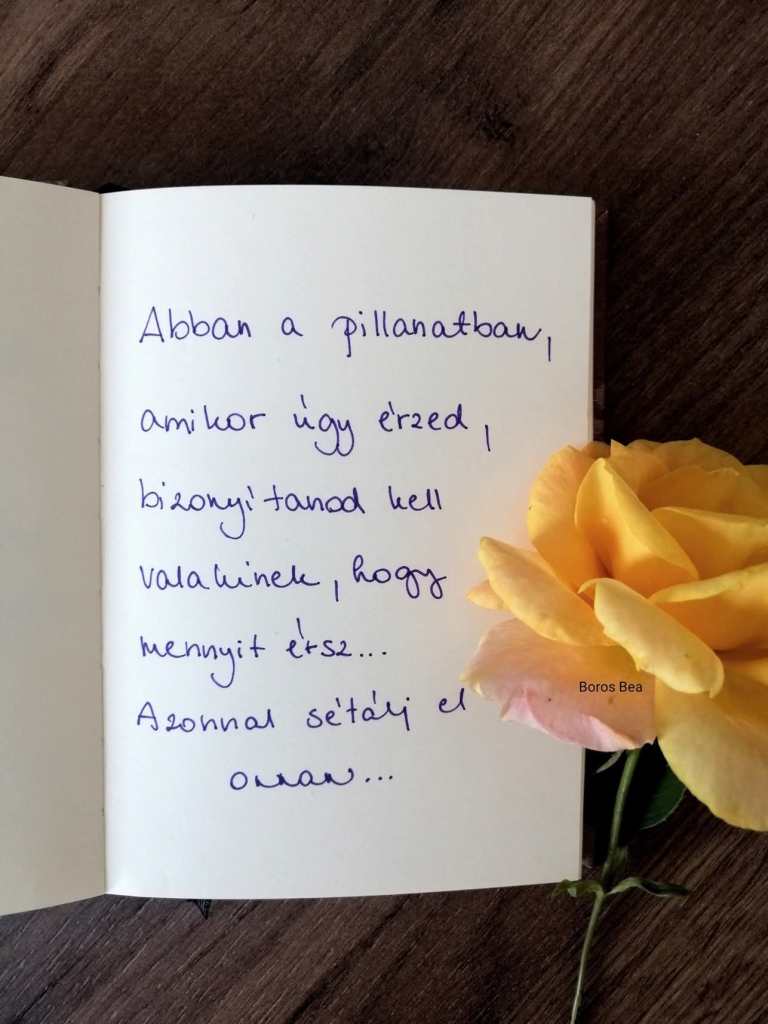 Abban a pillanatban,
amikor úgy érzed,
bizonyítanod kell
valakinek, hogy
mennyit érsz...
Azonnal sétálj el
onnan...
Boros Bea